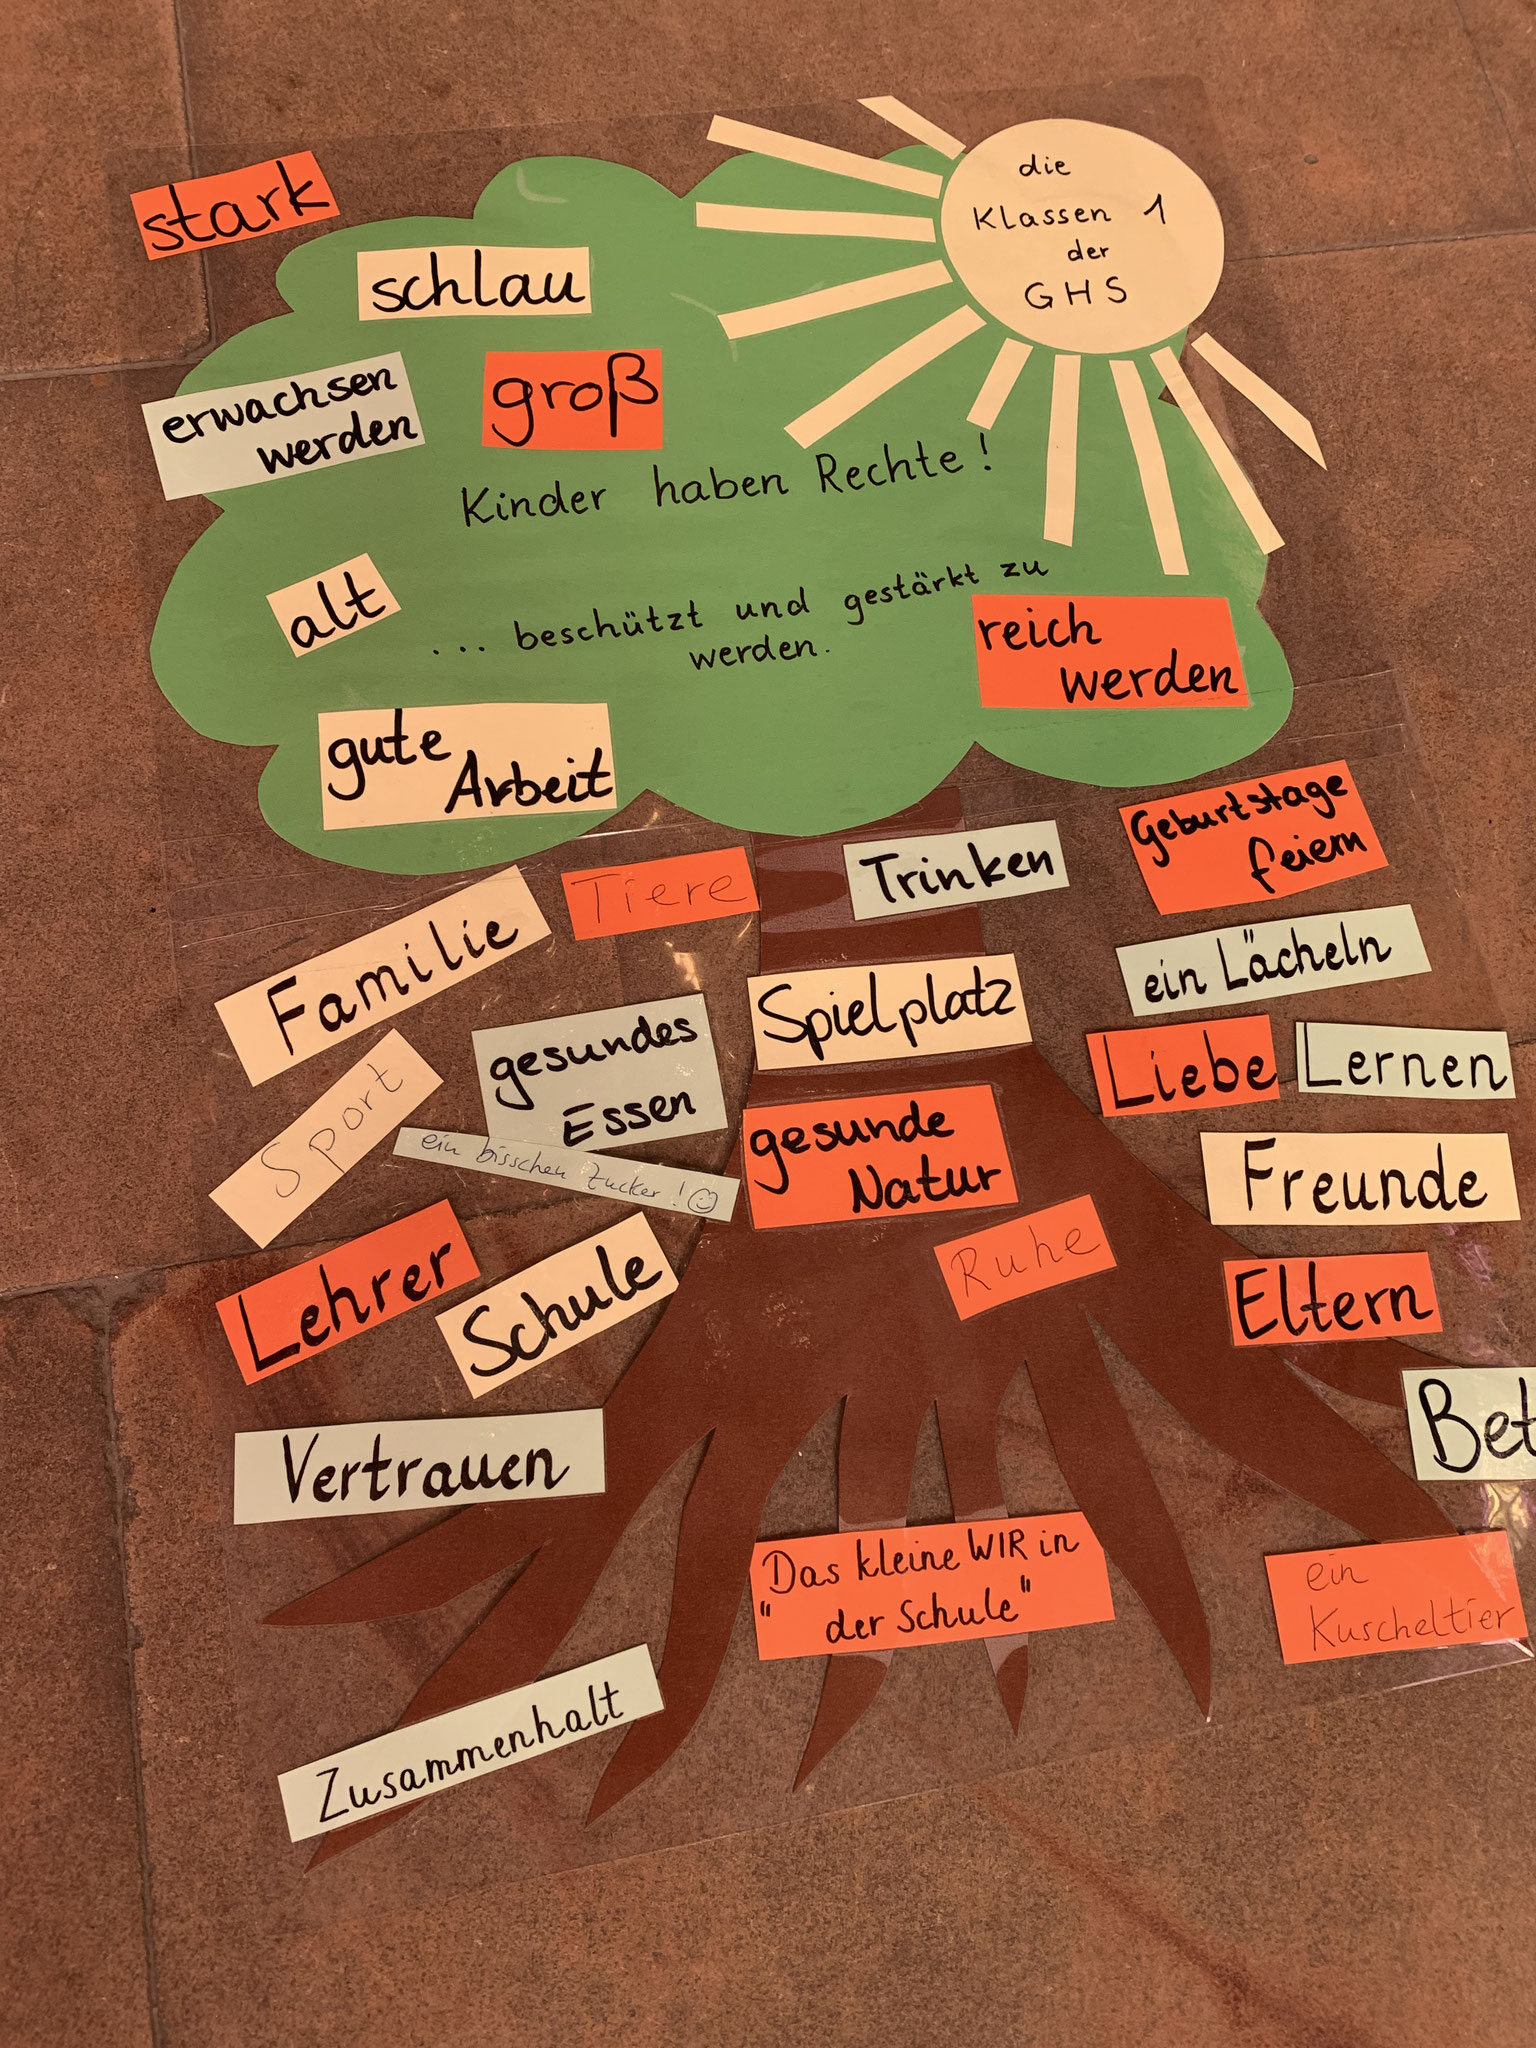 die
Klassen 1
der
GHS
stark
schlau
erwachsen
werden
groß
Kinder haben Rechte!
alt
... beschützt und gestärkt zu
werden.
reich
werden
gute
Arbeit
Geburtstage
feiern
Tiere
Trinken
Familie
ein Lächeln
Spielplatz
gesundes
Essen
Liebe
Lernen
Sport
ein bisschen Zucker!
gesunde
Natur
Freunde
Ruhe
Lehrer
Schule
Eltern
Bet
Vertrauen
"Das kleine WIR in
der Schule"
ein
Kuscheltier
Zusammenhalt